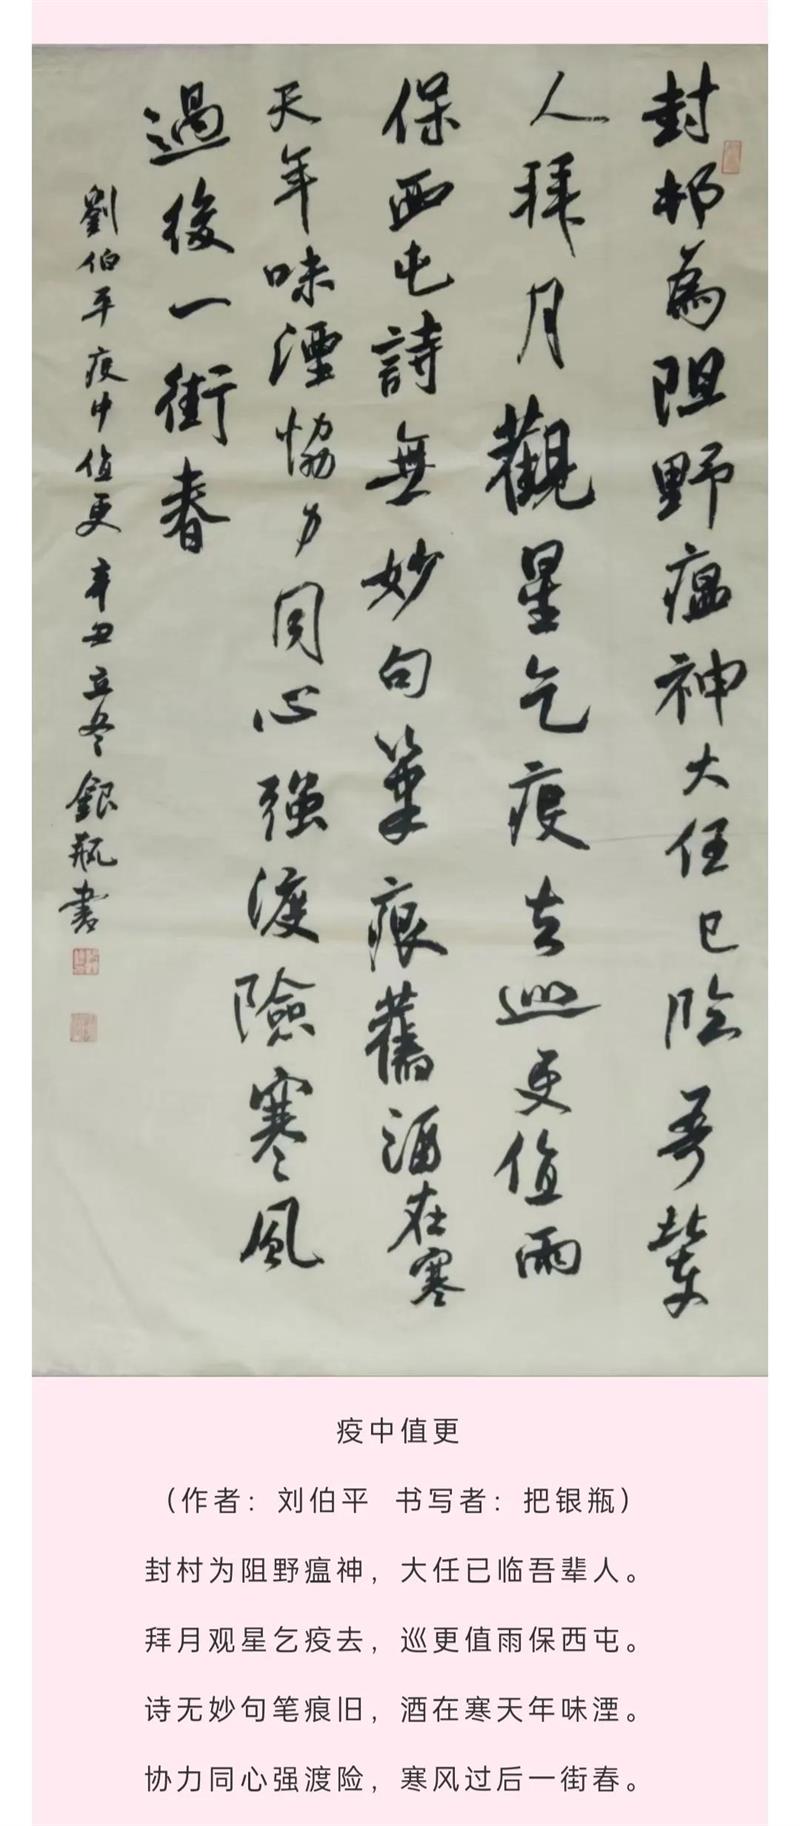 封邨為阻野瘟神大任已臨吾輩
人拜月觀星乞疫去巡更值雨
保西屯詩無妙句筆痕舊酒在寒
天年味湮協力同心强渡險寒風
過後一街春
劉伯平疫中值更辛丑立冬銀瓶書
疫中值更
（作者：刘伯平 书写者：把银瓶）
封村为阻野瘟神，大任已临吾辈人。
拜月观星乞疫去，巡更值雨保西屯。
诗无妙句笔痕旧，酒在寒天年味湮。
协力同心强渡险，寒风过后一街春。